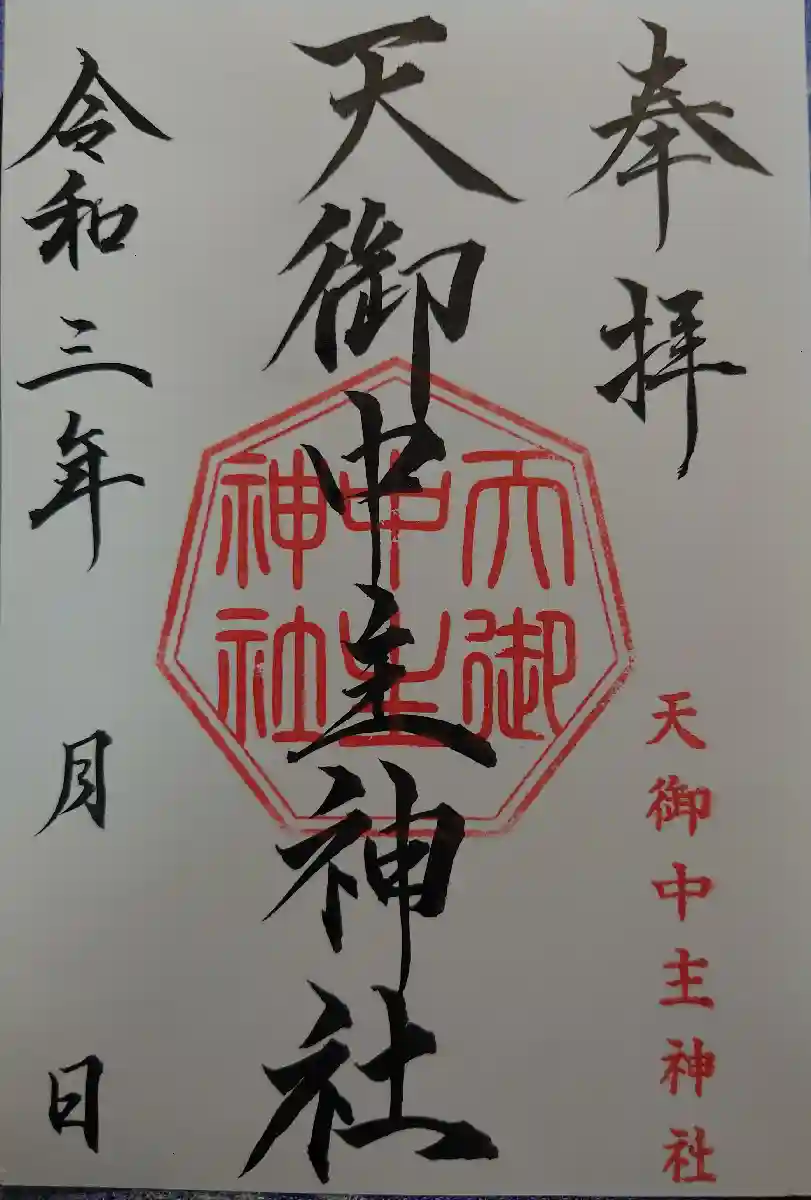 奉拝
天御中主神社
天御中主神社
天御
中主
神社
令和三年 月 日